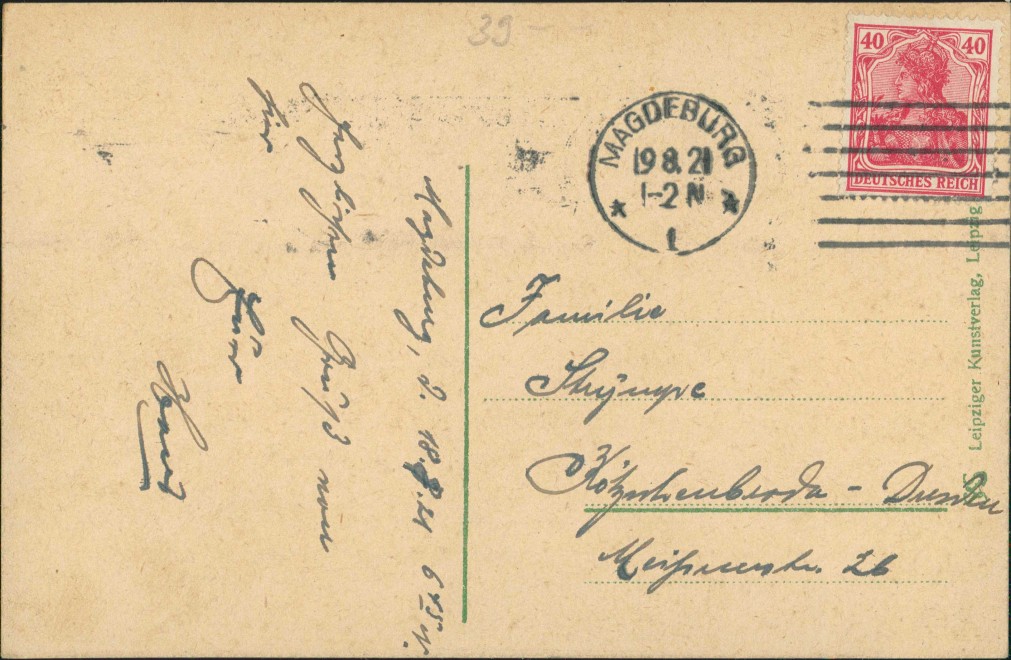 39 --
40 40
DEUTSCHES REICH
MAGDEBURG
19 8. 21
1-2 N
* 1 *
Magdeburg, d. 18.8.21 6 45 N.
Herzlichen Gruß von
hier
Hans
Familie
Kötzschenbroda - Dresden
Meißnerstr. 26
Leipziger Kunstverlag, Leipzig